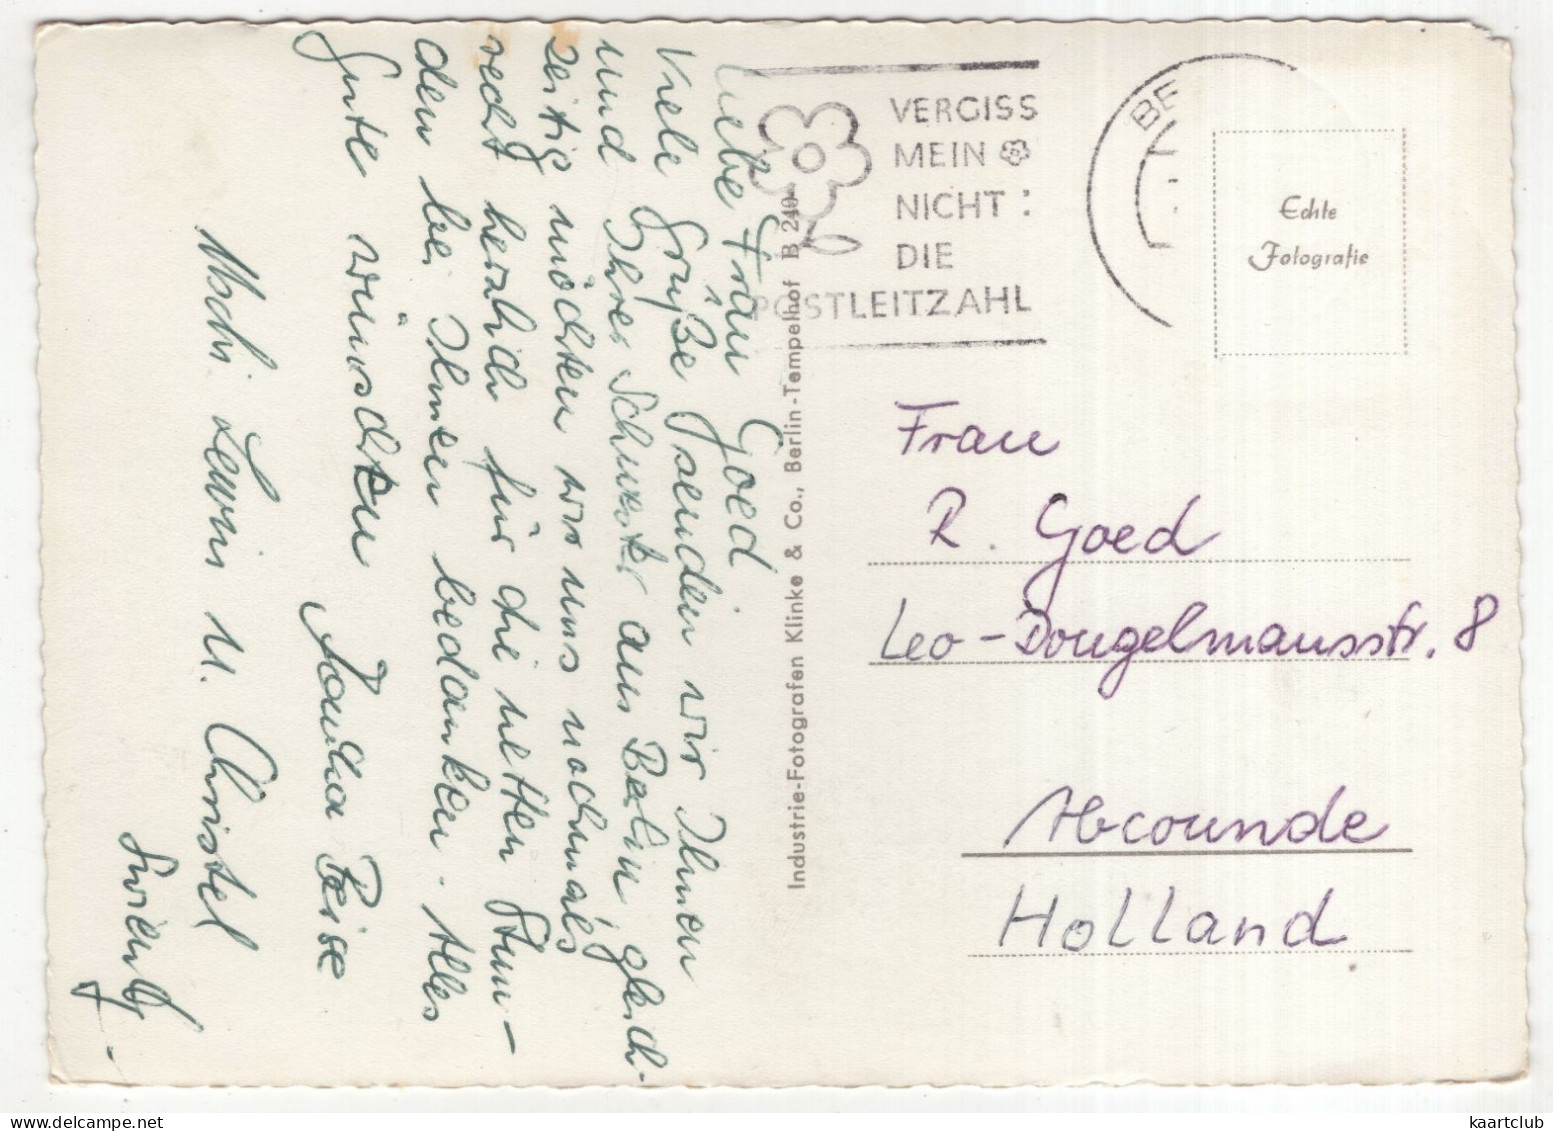 Liebe Frau Goed
Viele Grüße senden wir Ihnen
und Ihrer Schwester aus Berlin, gleich-
zeitig möchten wir uns nochmals
recht herzlich für die netten Stun-
den bei Ihnen bedanken. Alles
Gute wünschen Familie
u. Christel
VERGISS
MEIN
NICHT:
DIE
POSTLEITZAHL
BE
Echte
Fotografie
Industrie-Fotografen Klinke & Co., Berlin-Tempelhof B 240
Frau
R. Goed
Leo-Dougelmausstr. 8
Abcounde
Holland
kaartclub